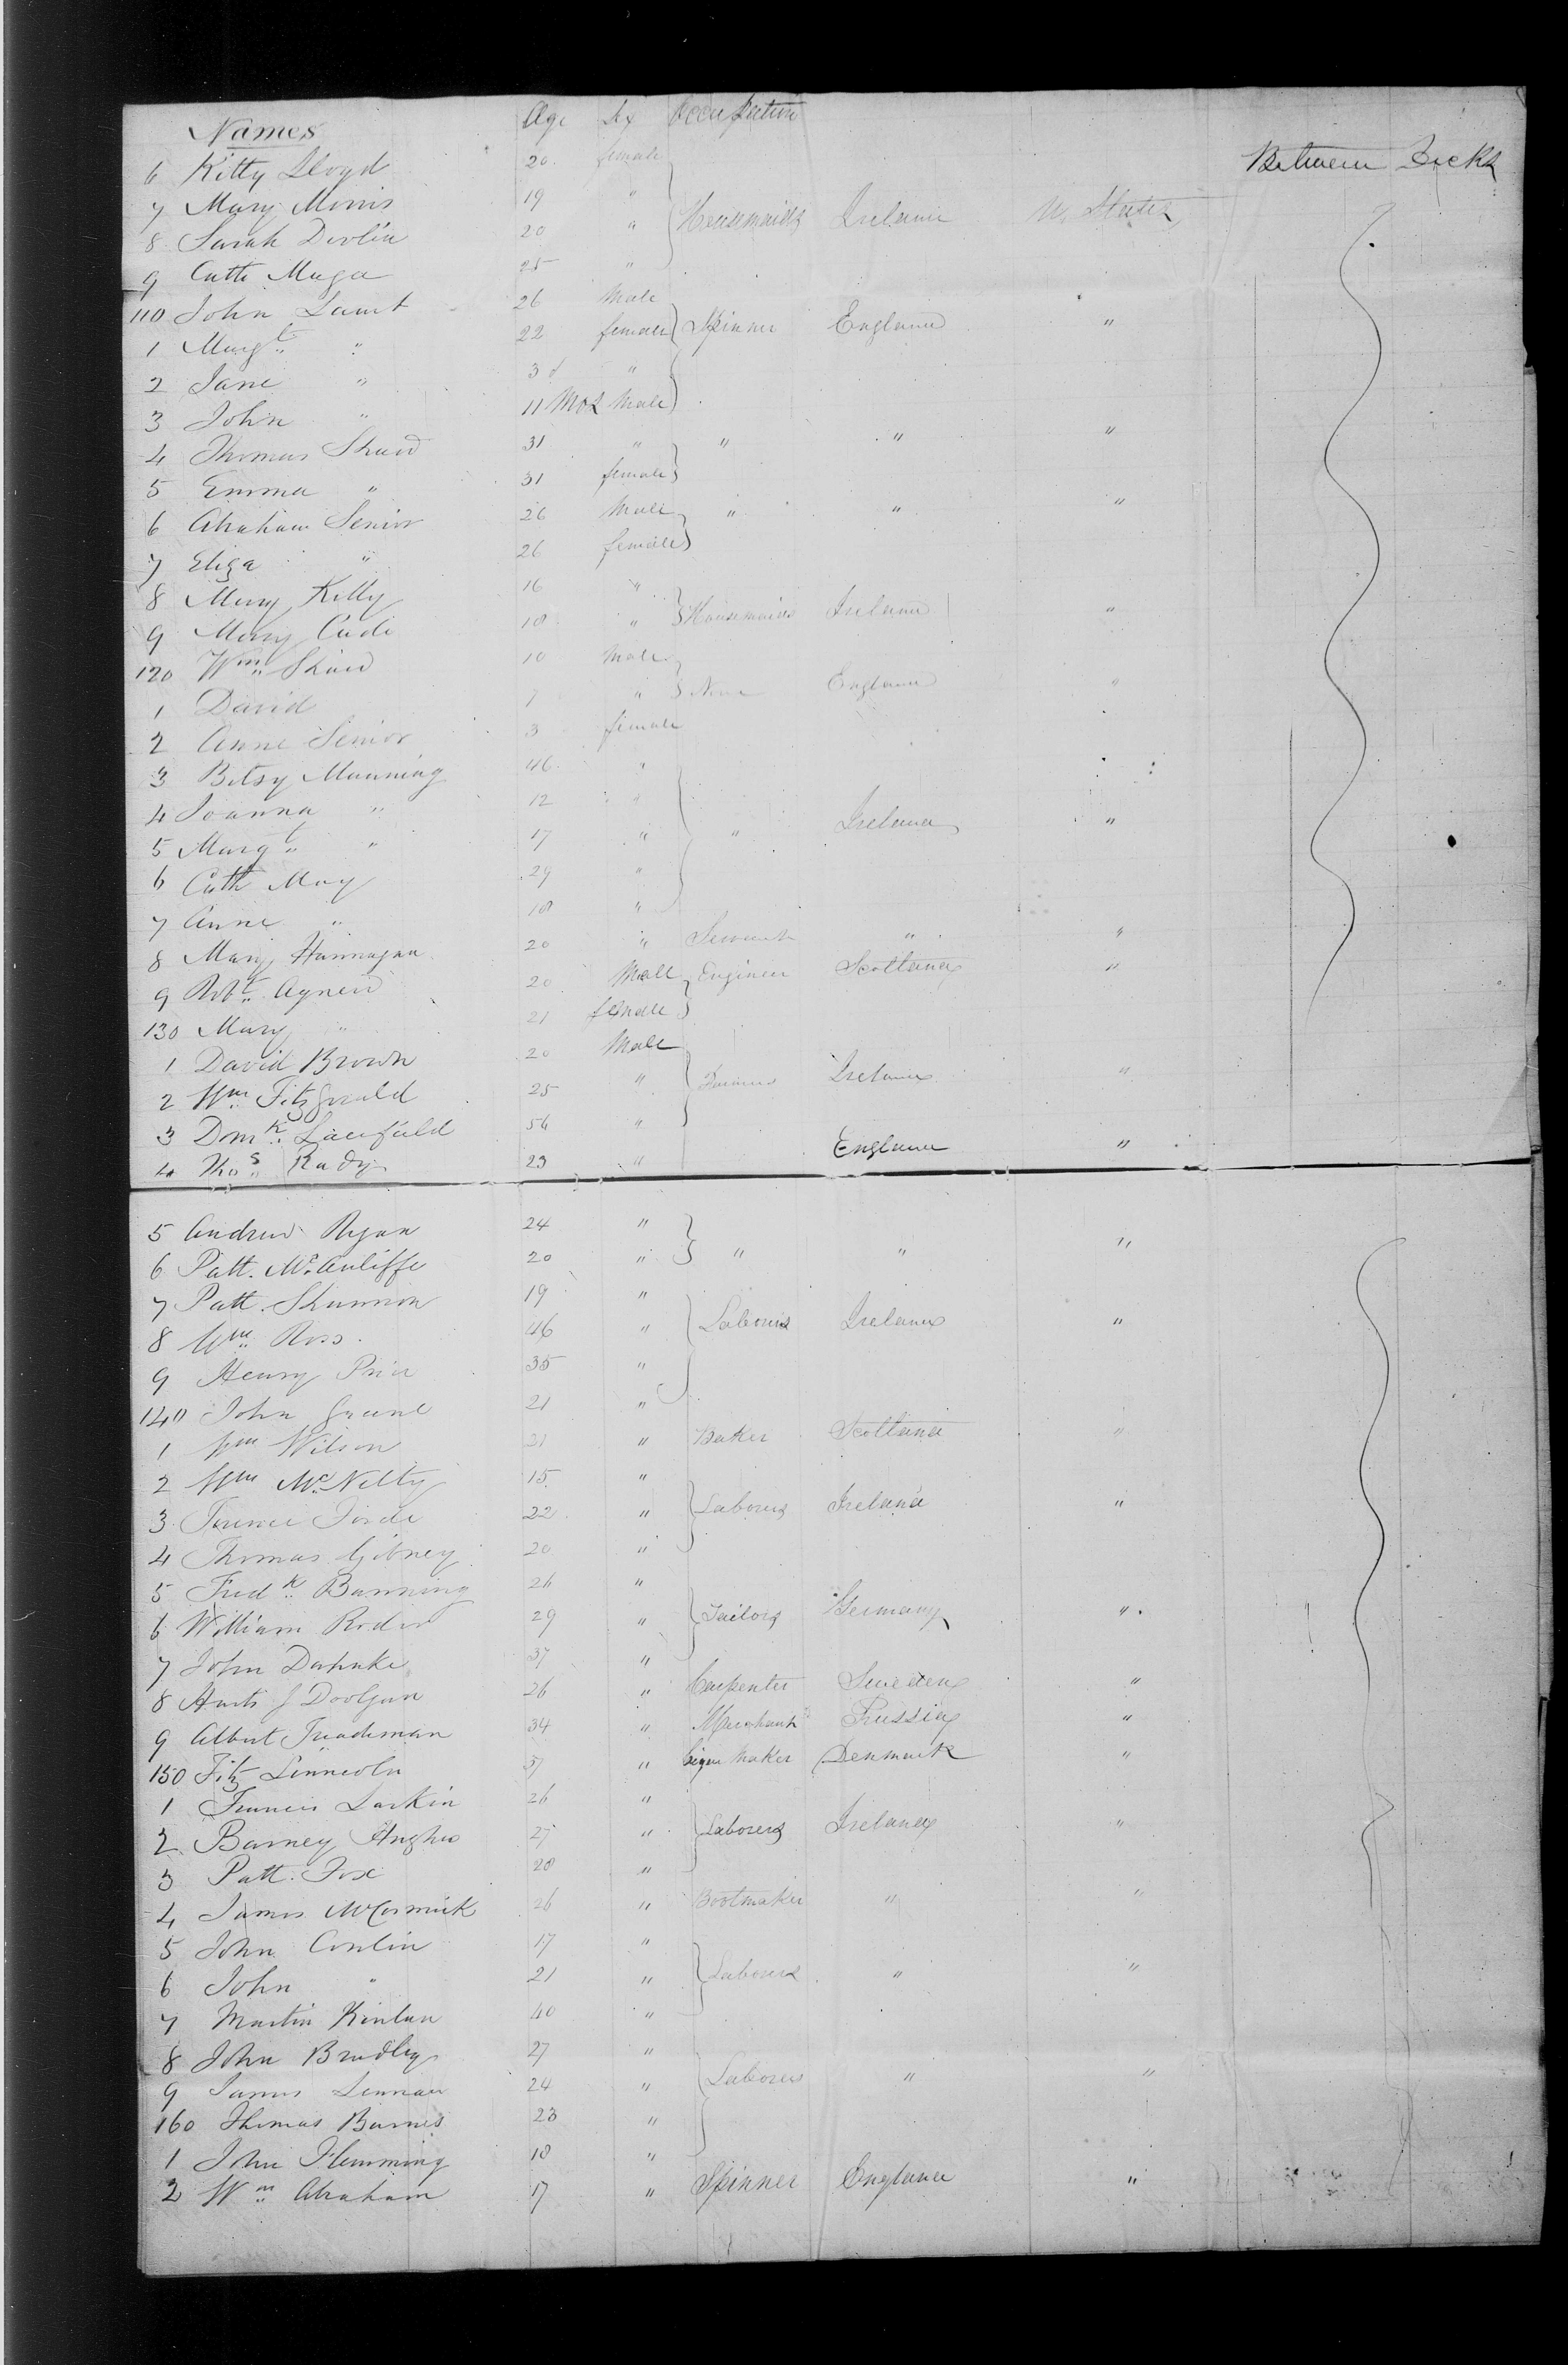 Names Age Sex Occupation
6 Kitty Lloyd 20 female Between Decks
7 Mary Morris 19 "
8 Sarah Devlin 20 " Housemaids Ireland U. States
9 Cath Magee 25 "
110 John Launt 26 Male
1 Margt " 22 female Spinner England "
2 Jane " 3 "
3 John " 11 Mos Male
4 Thomas Shaw 31 " " " "
5 Emma " 31 female
6 Abraham Senior 26 Male " " "
7 Eliza " 26 female
8 Mary Kelly 16 "
9 Mary Cude 18 " Housemaids Ireland "
120 Wm Shaw 10 Male
1 David 7 " None England "
2 Anne Senior 3 female
3 Betsy Manning 46 "
4 Joanna " 12 "
5 Margt " 17 " " Ireland "
6 Cath May 29 "
7 Anne " 18 "
8 Mary Hannagan 20 " Servant " "
9 Robt Agnew 20 Male Engineer Scotland "
130 Mary " 21 female
1 David Brown 20 Male
2 Wm Fitzgerald 25 " Farmers Ireland "
3 Domk Lacefield 54 "
4 Thos Rady 23 " England "
5 Andrew Ryan 24 "
6 Patt. McAuliffe 20 " " " "
7 Patt. Shannon 19 "
8 Wm Ross 46 " Laborers Ireland "
9 Henry Price 35 "
140 John Greene 21 "
1 Wm Wilson 21 " Baker Scotland "
2 Wm McNelty 15 "
3 Terence Forde 22 " Laborers Ireland "
4 Thomas Gibney 20 "
5 Fredk Banning 26 "
6 William Roder 29 " Tailors Germany "
7 John Dahnke 37 "
8 J Doolgan 26 " Carpenter Sweden "
9 Albert Truchman 34 " Merchant Prussia "
150 Fitz Linncoln 37 " Cigar Maker Denmark "
1 Francis Larkin 26 "
2 Barney Hughes 27 " Laborers Ireland "
3 Patt. Fox 28 "
4 James McCormick 26 " Bootmaker " "
5 John Conlin 17 "
6 John " 21 " Laborers " "
7 Martin Kinlan 40 "
8 John Bradley 27 "
9 James Lennan 24 " Laborers " "
160 Thomas Barnes 23 "
1 John Flemming 18 "
2 Wm Abraham 17 " Spinner England "